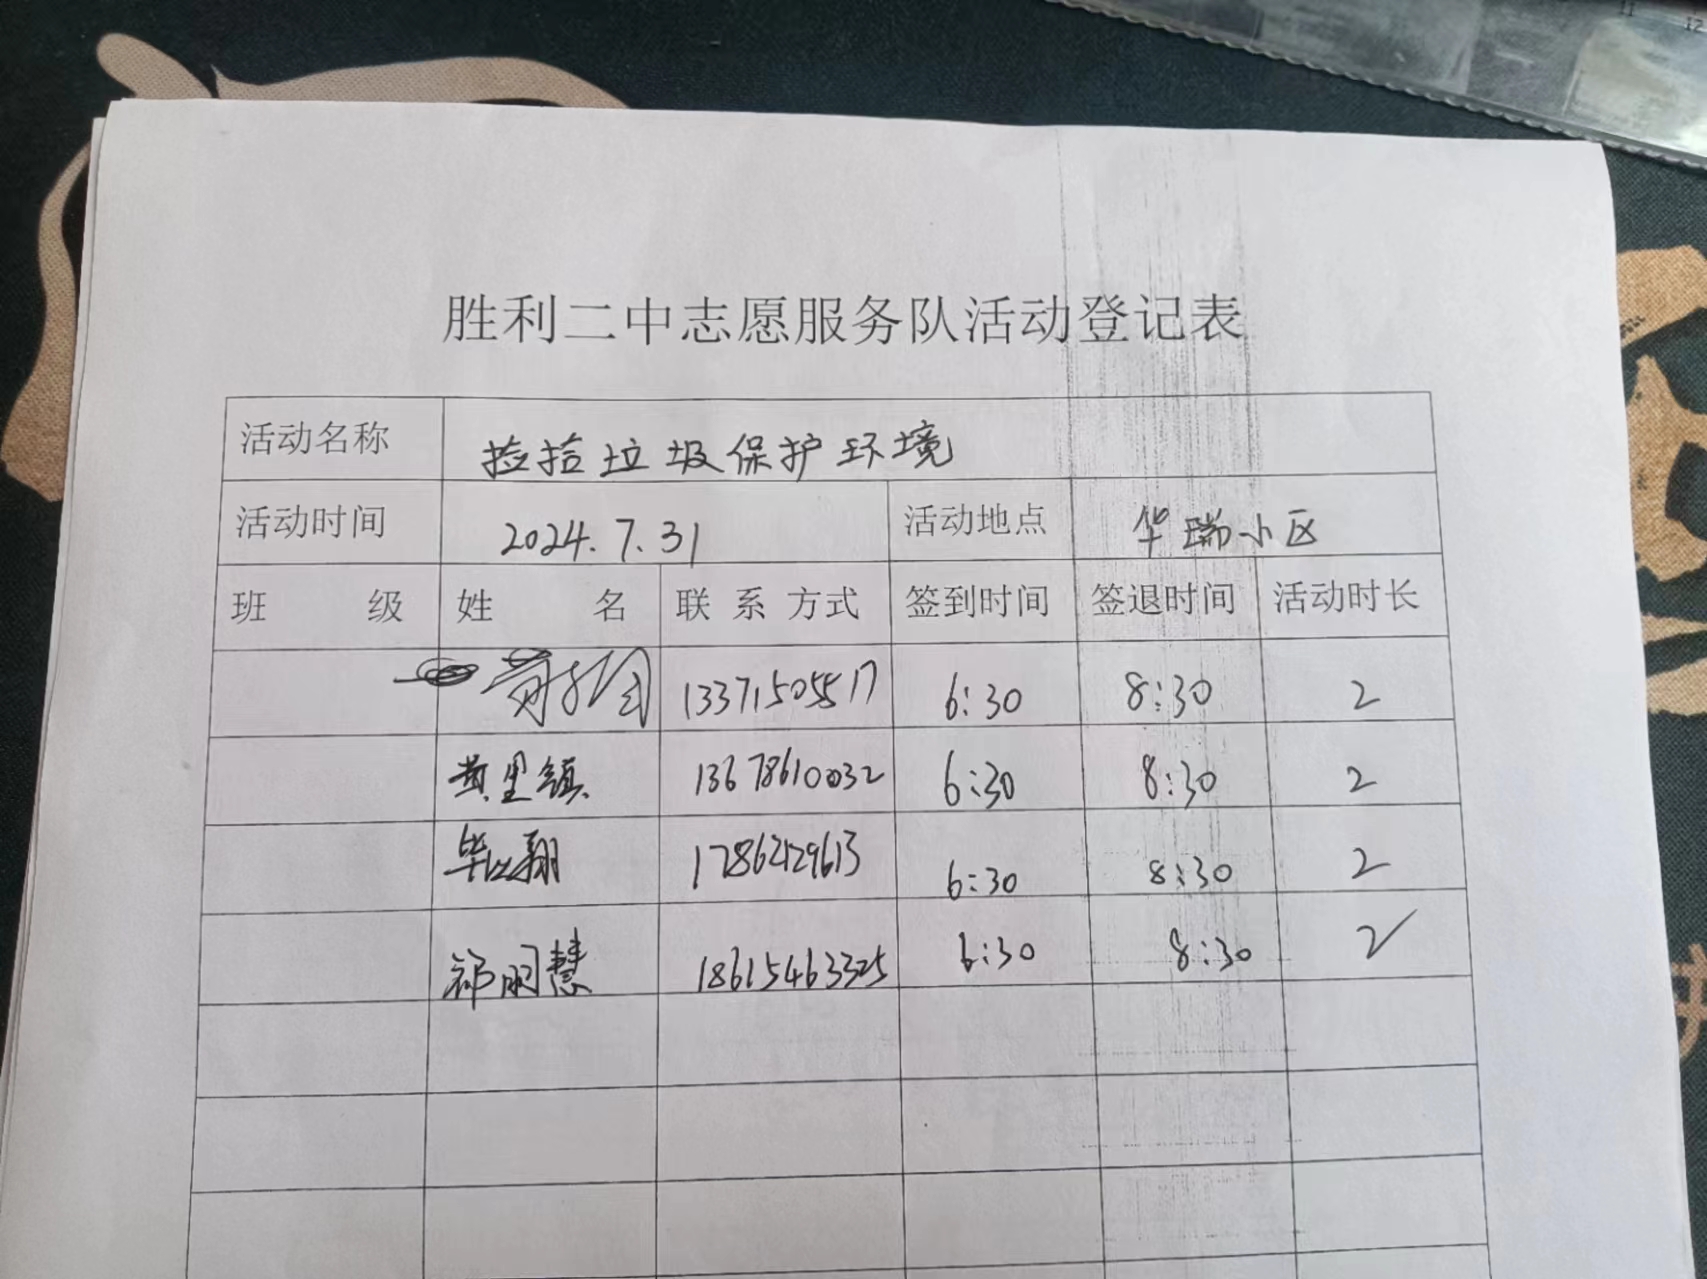 胜利二中志愿服务队活动登记表
活动名称 捡拾垃圾保护环境
活动时间 2024.7.31 活动地点 华瑞小区
班 级 姓 名 联 系 方式 签到时间 签退时间 活动时长
13371505517 6:30 8:30 2
黄里镇 13678610032 6:30 8:30 2
毕以翔 17862129613 6:30 8:30 2
祁明慧 18615463325 6:30 8:30 2